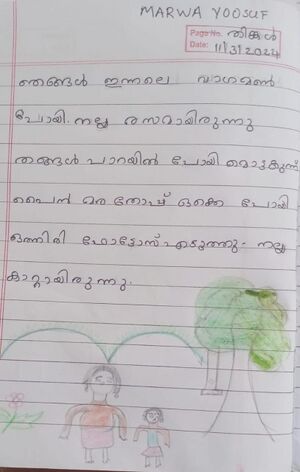 MARWA YOOSUF
Page No. തിങ്കൾ
Date: 11/3/2024
ഞങ്ങൾ ഇന്നലെ വാഗമൺ
പോയി. നല്ല രസമായിരുന്നു
തങ്ങൾ പാറയിൽ പോയി മൊട്ടകുന്ന്
പൈൻ മര തോപ്പ് ഒക്കെ പോയി
ഒത്തിരി ഫോട്ടോസ് എടുത്തു. നല്ല
കാറ്റായിരുന്നു.